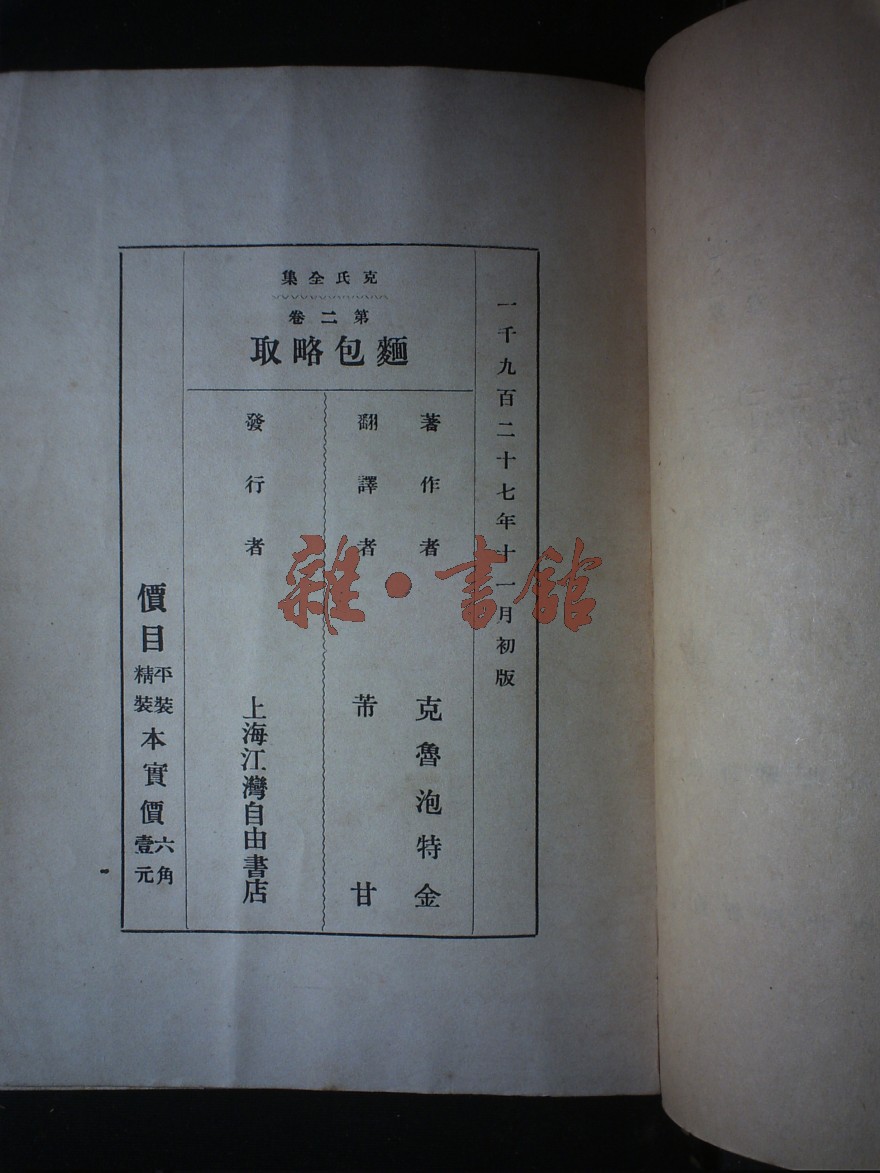 一千九百二十七年十一月初版
克氏全集
第二卷
麵包略取
著作者 克魯泡特金
翻譯者 芾甘
發行者 上海江灣自由書店
價目 平裝 精裝 本實價 六角 壹元
雜·書館